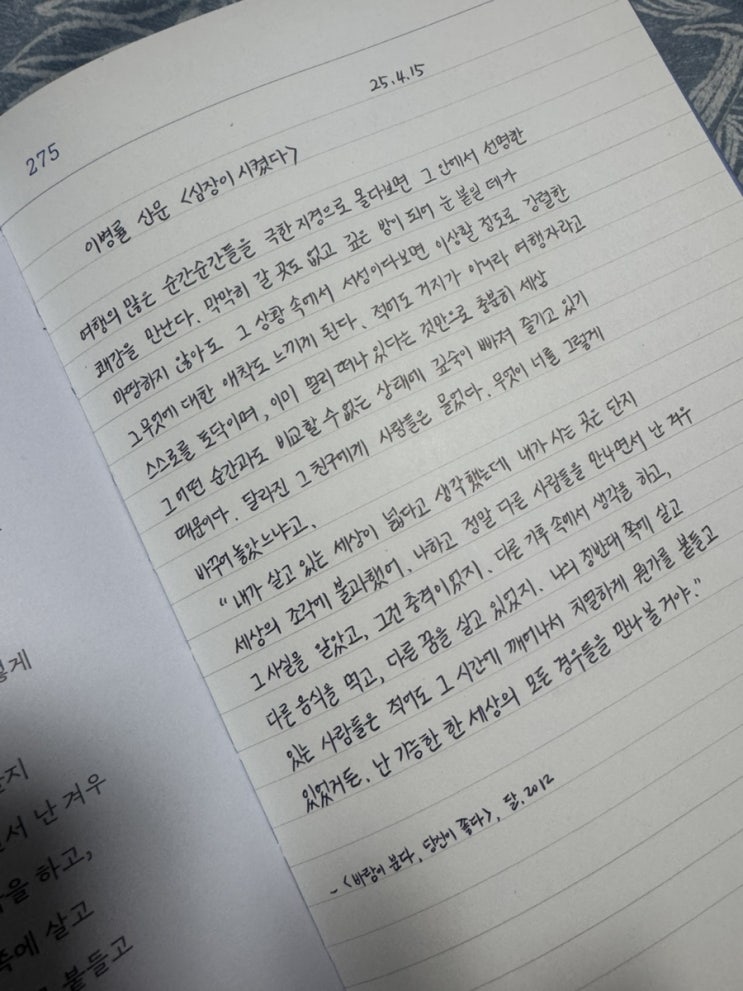 25.4.15
275
이병률 산문 <심장이 시켰다>
여행의 많은 순간순간들을 극한 지경으로 몰다보면 그 안에서 선명한
쾌감을 만난다. 막막히 갈 곳도 없고 깊은 밤이 되어 눈 붙일 데가
마땅하지 않아도 그 상황 속에서 서성이다보면 이상할 정도로 강렬한
그 무엇에 대한 애착도 느끼게 된다. 적어도 거지가 아니라 여행자라고
스스로를 토닥이며, 이미 멀리 떠나 있다는 것만으로 충분히 세상
그 어떤 순간과도 비교할 수 없는 상태에 깊숙이 빠져 즐기고 있기
때문이다. 달라진 그 친구에게 사람들은 물었다. 무엇이 너를 그렇게
바꾸어 놓았느냐고.
"내가 살고 있는 세상이 넓다고 생각했는데 내가 사는 곳은 단지
세상의 조각에 불과했어. 나하고 정말 다른 사람들을 만나면서 난 겨우
그 사실을 알았고, 그건 충격이었지. 다른 기후 속에서 생각을 하고,
다른 음식을 먹고, 다른 꿈을 살고 있었지. 나의 정반대 쪽에 살고
있는 사람들은 적어도 그 시간에 깨어나서 치열하게 뭔가를 붙들고
있었거든. 난 가능한 한 세상의 모든 경우들을 만나볼 거야."
- <바람이 분다, 당신이 좋다>, 달, 2012
렇게
단지
서 난 겨우
을 하고,
쪽에 살고
붙들고